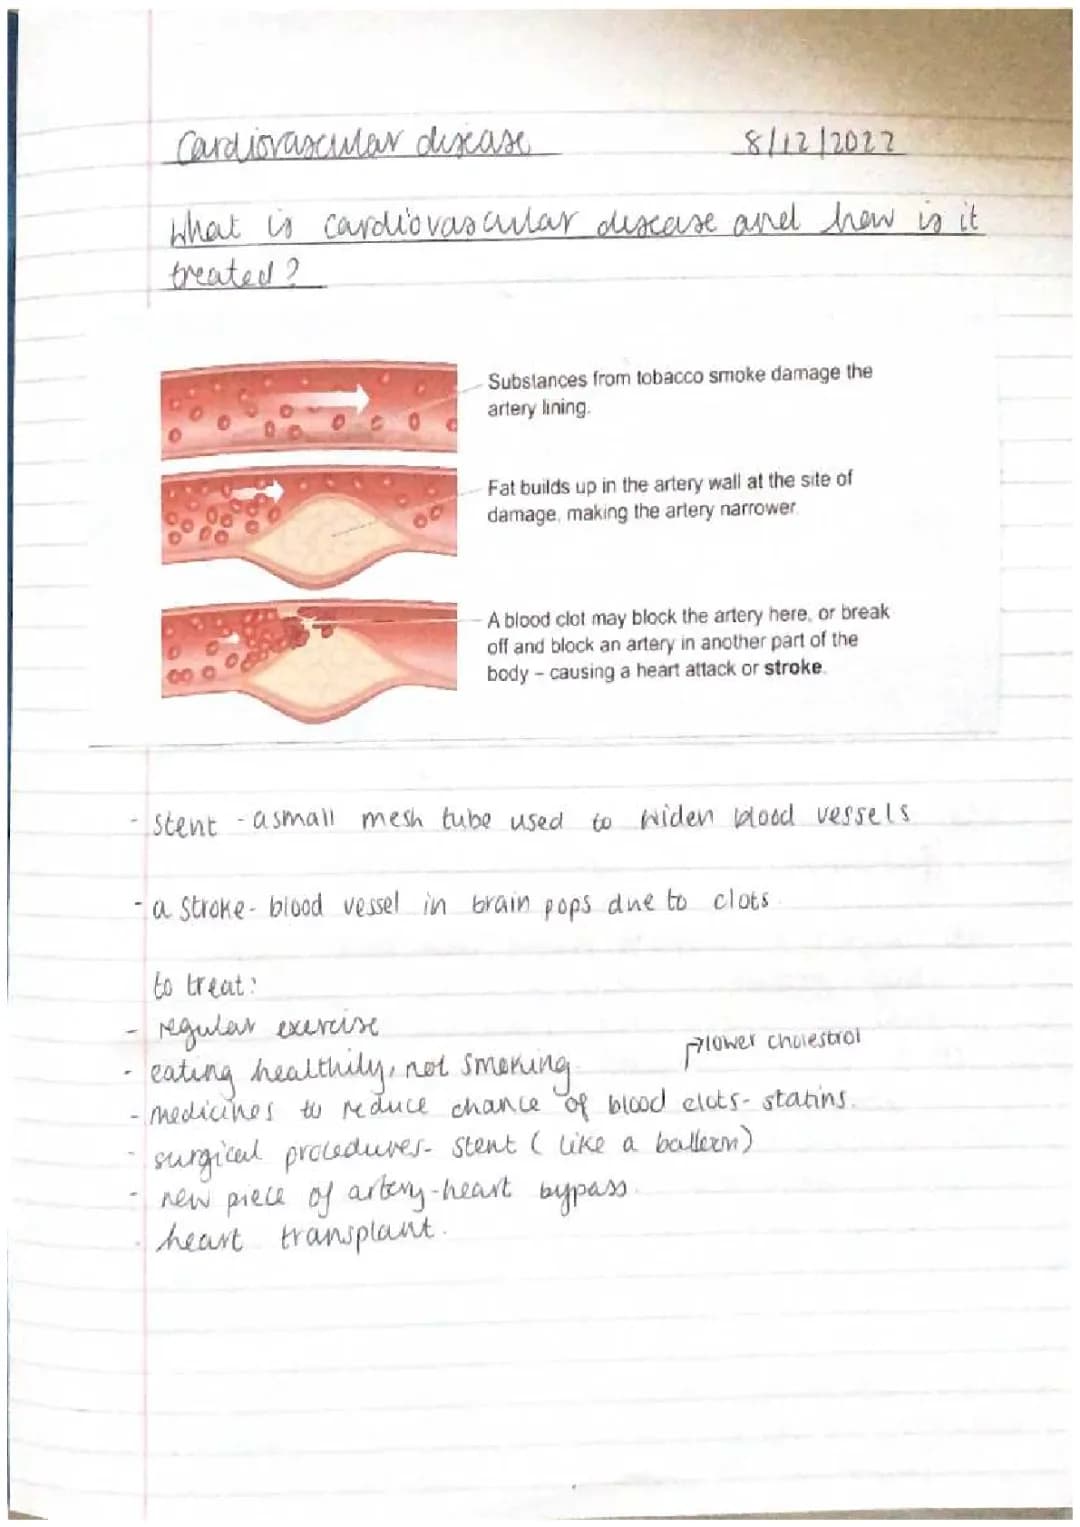 Cardiovascular disease 8/12/2022
What is cardiovascular disease and how is it
treated?
Substances from tobacco smoke damage the
artery lining.
Fat builds up in the artery wall at the site of
damage, making the artery narrower
A blood clot may block the artery here, or break
off and block an artery in another part of the
body – causing a heart attack or stroke.
- stent - a small mesh tube used to widen blood vessels
- a stroke - blood vessel in brain pops due to clots.
to treat:
- regular exercise
→ lower cholestrol
- eating healthily, not smoking.
- medicines to reduce chance of blood clots - statins.
- surgical procedures - stent (like a balloon)
- new piece of artery - heart bypass.
- heart transplant.